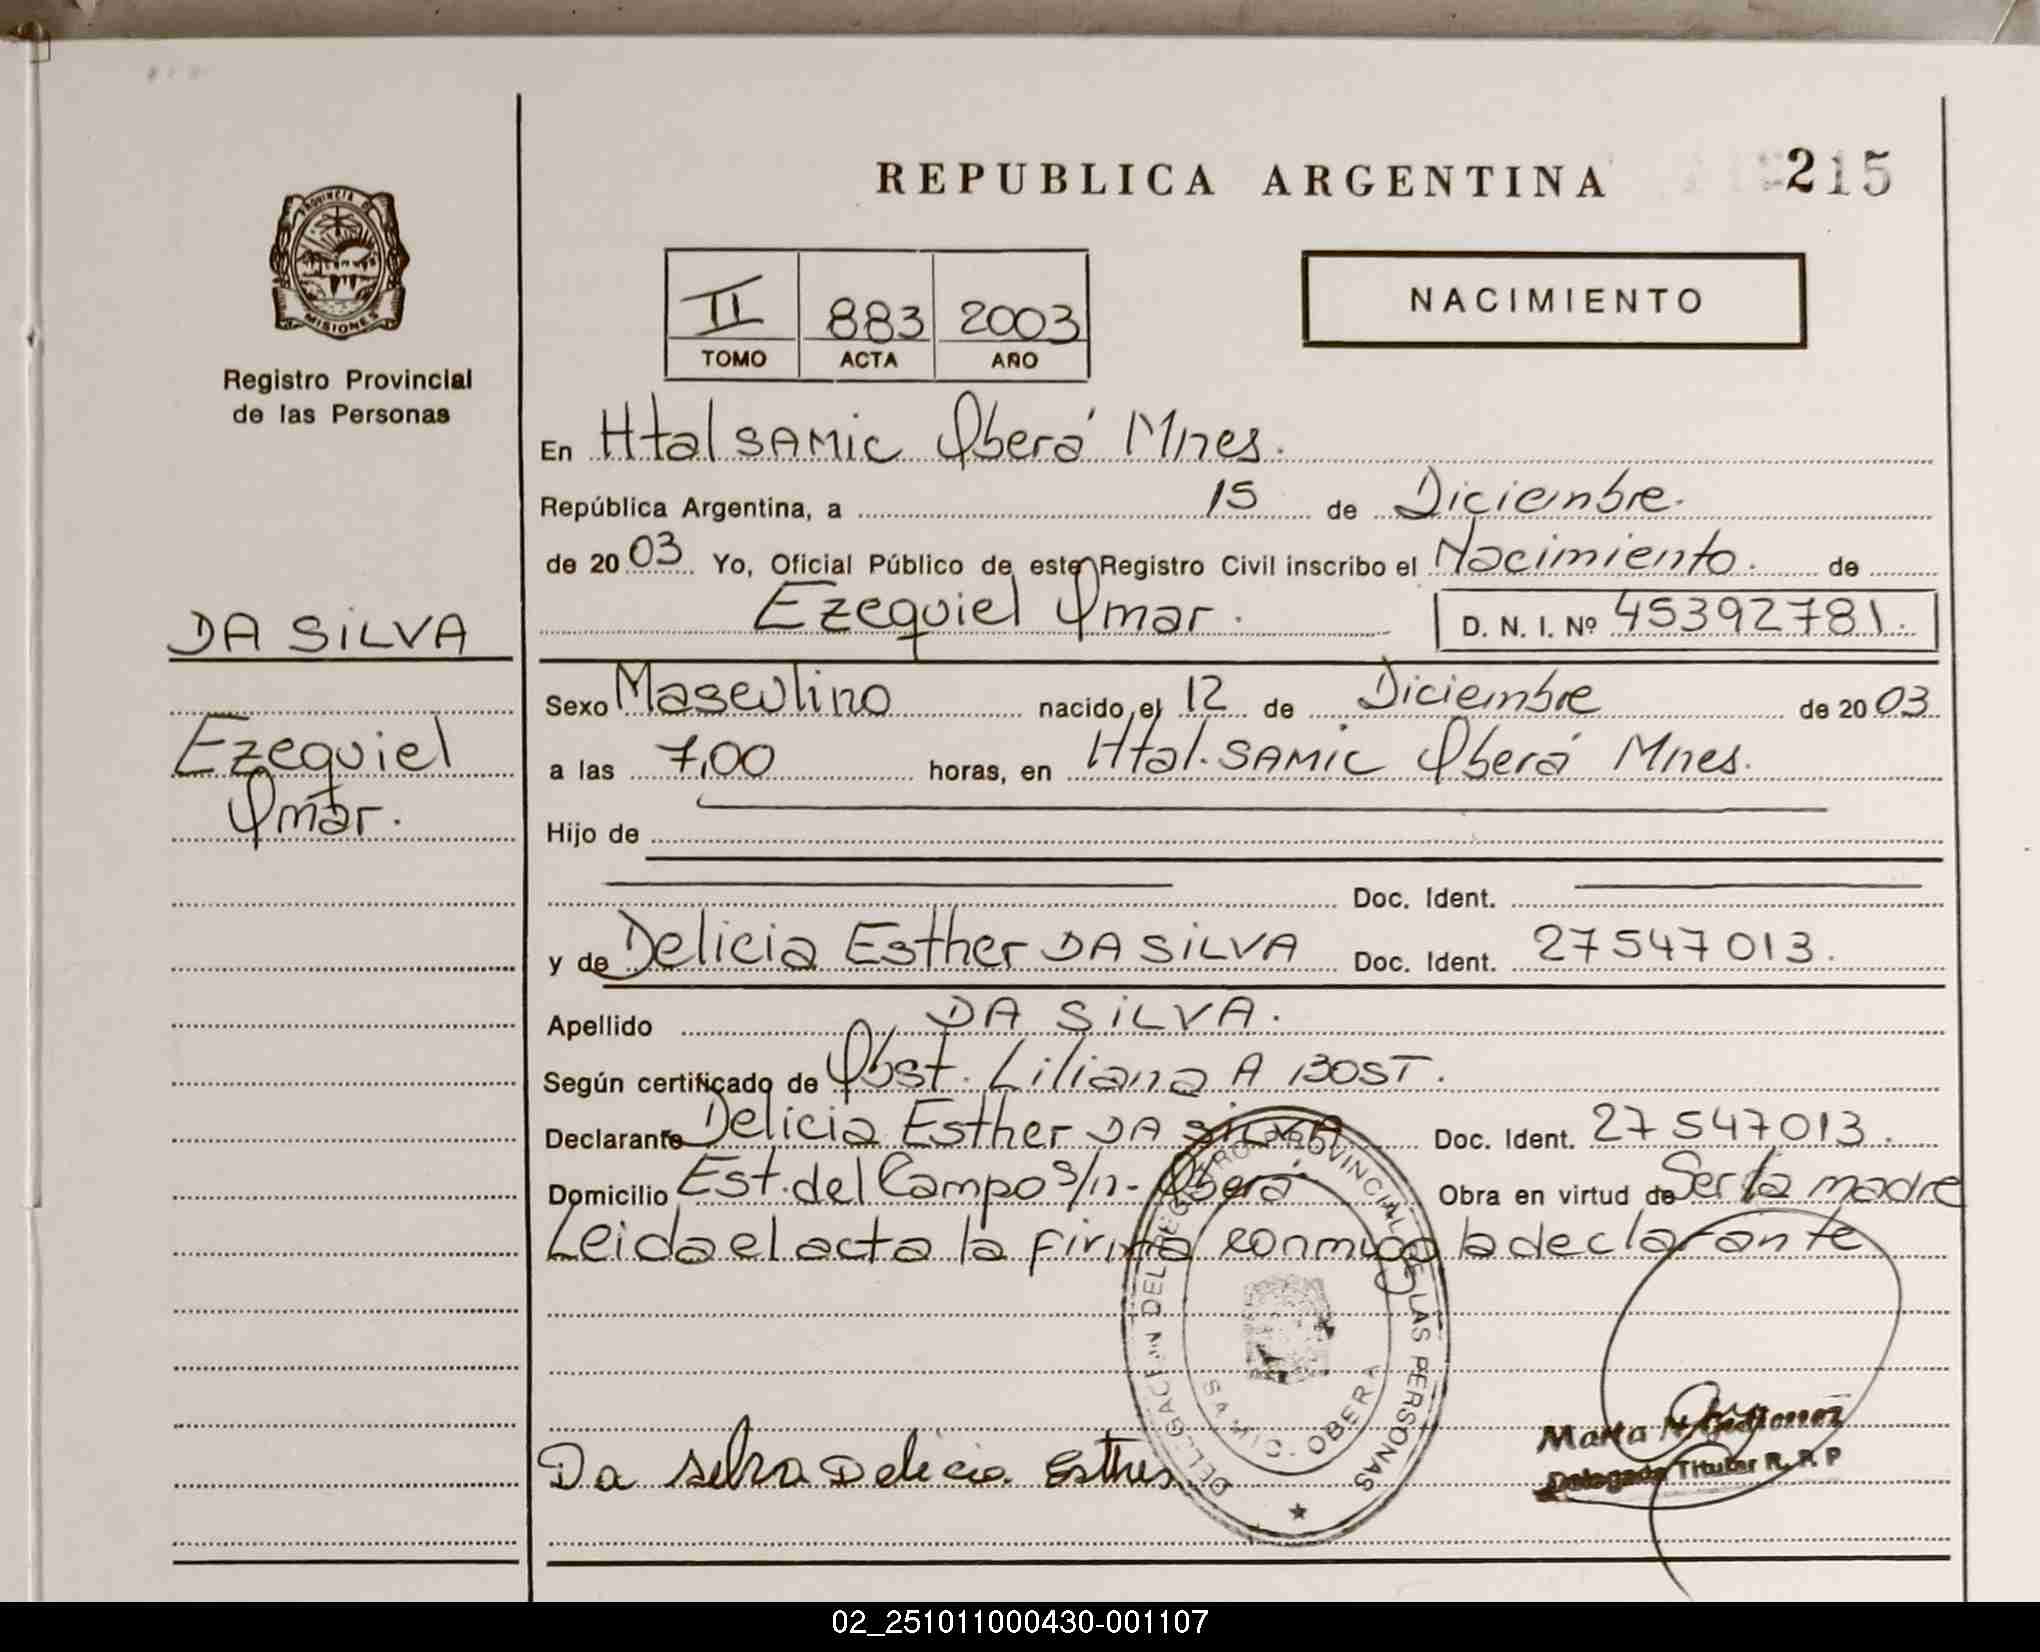 REPUBLICA ARGENTINA 215
PROVINCIA DE
MISIONES
Registro Provincial
de las Personas
II 883 2003
TOMO ACTA AÑO
NACIMIENTO
En Htal SAMIC Oberá Mnes.
República Argentina, a 15 de Diciembre.
de 2003 Yo, Oficial Público de este Registro Civil inscribo el Nacimiento. de
Ezequiel Omar. D. N. I. Nº 45392781.
DA SILVA
Ezequiel
Omar.
Sexo Masculino nacido el 12 de Diciembre de 2003
a las 7,00 horas, en Htal. SAMIC Oberá Mnes.
Hijo de
Doc. Ident.
y de Delicia Esther DA SILVA Doc. Ident. 27547013.
Apellido DA SILVA.
Según certificado de Obst. Liliana A BOST.
Declarante Delicia Esther DA SILVA Doc. Ident. 27547013.
Domicilio Est. del Campo s/n - Oberá Obra en virtud de Ser la madre
Leida el acta la firma conmigo la declarante
DELEGACION DEL REGISTRO PROVINCIAL DE LAS PERSONAS
SAMIC - OBERA
Da Silva Delicia Esther
Marta N
Delegada Titular R. P. P
02_251011000430-001107